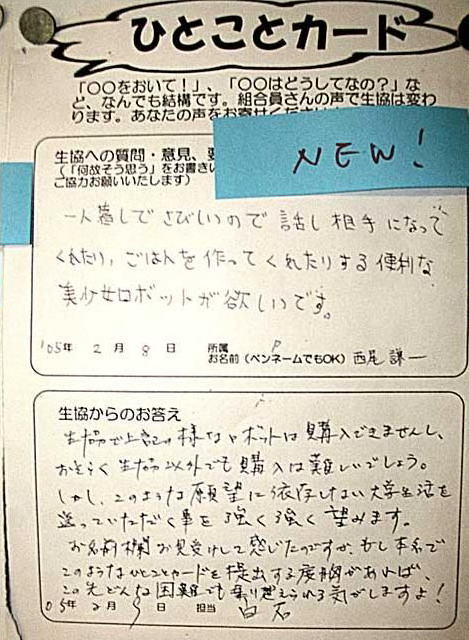 ひとことカード
「〇〇をおいて！」、「〇〇はどうしてなの？」な
ど、なんでも結構です。組合員さんの声で生協は変わ
ります。あなたの声をお寄せください
NEW!
生協への質問・意見、要
（「何故そう思う」をお書きい
ご協力お願いいたします）
一人暮しでさびしいので話し相手になって
くれたり、ごはんを作ってくれたりする便利な
美少女ロボットが欲しいです。
'05年 2月 8日 所属
お名前（ペンネームでもOK） 西尾 謙一
生協からのお答え
生協で上記の様なロボットは購入できませんし、
おそらく生協以外でも購入は難しいでしょう。
しかし、このような願望に依存しない大学生活を
送っていただく事を強く強く望みます。
お名前欄お見受けして感じたのですが、もし本名で
このようなひとことカードを提出する度胸があれば、
この先どんな困難でも乗り越えられる気がしますよ！
05年 2月 日 担当 白石